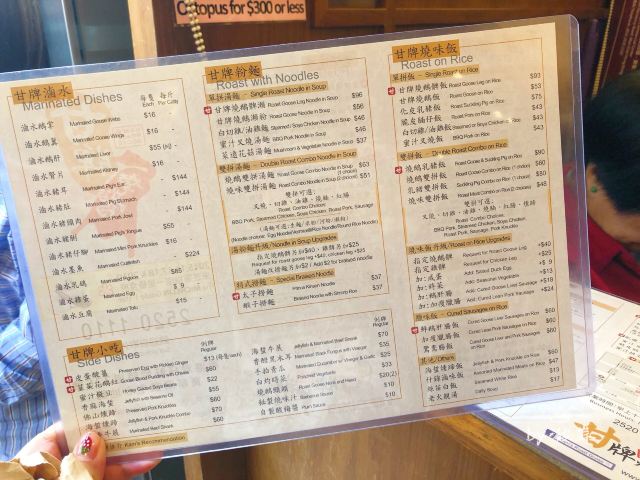 Octopus for $300 or less
甘牌滷水
Marinated Dishes
每隻 每斤
Each Per Catty
滷水鵝掌 Marinated Goose Webs $16 -
滷水鵝翼 Marinated Goose Wings $16 -
滷水鵝肝 Marinated Liver $55 (兩) -
滷水腎片 Marinated Kidney $16 -
滷水豬耳 Marinated Pig's Ear - $144
滷水豬肚 Marinated Pig Stomach - $144
滷水豬頭肉 Marinated Pork Jowl - $144
滷水豬脷 Marinated Pig's Tongue $55 -
滷水豬仔腳 Marinated Mini Pork Knuckles $16 -
滷水墨魚 Marinated Cuttlefish - $224
滷水乳鴿 Marinated Pigeon $85 -
滷水雞蛋 Marinated Egg $9 -
滷水豆腐 Marinated Tofu $15 -
甘牌小吃
Side Dishes
例牌
Regular
皮蛋酸薑 Preserved Egg with Pickled Ginger
Goose Blood Pudding with Chives $60
蜜汁黃豆 Honey Glazed Soya Beans $22
香麻海蜇 Jellyfish with Sesame Oil $55
佛山燻蹄 Preserved Pork Knuckles $70
海蜇燻蹄 Jellyfish & Pork Knuckles Combo $70
滷牛展 Marinated Beef Shank $60
Kam's Recommendation
例牌
Regular
海蜇牛展 Jellyfish & Marinated Beef Shank $70
香醋黑木耳 Marinated Black Fungus with Vinegar $35
手拍青瓜 Marinated Cucumber in Vinegar & Garlic $25
白灼時菜 Poached Vegetables $33
燒鵝頭頸 Roast Goose Head and Neck $20(2)
秘製燒味汁 Barbecue Sauce $10
自製酸梅醬 Plum Sauce $10
甘牌粉麵
Roast with Noodles
單拼湯麵 - Single Roast Noodle in Soup
甘牌燒鵝髀瀨 Roast Goose Leg Noodle in Soup $96
甘牌燒鵝瀨粉 Roast Goose Noodle in Soup $56
白切雞/油雞麵 Steamed / Soya Chicken Noodle in Soup $46
蜜汁叉燒湯麵 BBQ Pork Noodle in Soup $46
菜遠花菇湯麵 Mushroom & Vegetable Noodle in Soup $37
雙拼湯麵 - Double Roast Combo Noodle in Soup
燒鵝雙拼湯麵 Roast Goose Combo Noodle in Soup (1 choice) $63
燒味雙拼湯麵 Roast Combo Noodle in Soup (2 choices) $51
雙拼可選：
叉燒、切雞、油雞、燒腩、紅腸
Roast Combo Choices:
BBQ Pork, Steamed Chicken, Soya Chicken, Roast Pork, Sausage
湯粉麵升級/Noodle in Soup Upgrades
指定燒鵝髀加$40，雞髀加$25
Request for roast goose leg +$40; chicken leg +$25
撈麵 - Special Braised Noodle
太子撈麵 Hana Kinsen Noodle $37
蝦子撈麵 Braised Noodle with Shrimp Roe $37
甘牌燒味飯
Roast on Rice
單拼飯 - Single Roast on Rice
甘牌燒鵝髀飯 Roast Goose Leg on Rice $93
甘牌燒鵝飯 Roast Goose on Rice $53
化皮乳豬飯 Roast Suckling Pig on Rice $75
脆皮腩仔飯 Roast Pork on Rice $43
白切雞/油雞飯 Steamed or Soya Chicken on Rice $43
蜜汁叉燒飯 BBQ Pork on Rice $43
雙拼飯 - Double Roast Combo on Rice
燒鵝乳豬飯 Roast Goose & Suckling Pig on Rice $90
燒鵝雙拼飯 Roast Goose Combo on Rice (1 choice) $60
乳豬雙拼飯 Suckling Pig Combo on Rice (1 choice) $80
燒味雙拼飯 Roast Meat Combo on Rice (2 choices) $48
雙拼可選：
叉燒、切雞、油雞、燒腩、紅腸
Roast Combo Choices:
BBQ Pork, Steamed Chicken, Soya Chicken,
Roast Pork, Sausage, Pork Knuckles
燒味飯升級/Roast on Rice Upgrades
指定燒鵝髀 Request for Roast Goose Leg +$40
指定雞髀 Request for Chicken Leg +$25
加：鹹蛋 Add: Salted Duck Egg +$9
加：時菜 Add: Seasonal Vegetables +$13
加：鵝肝腸 Add: Cured Goose Liver Sausage +$18
加：加瘦臘腸 Add: Cured Lean Pork Sausage +$24
臘味飯 - Cured Sausages on Rice
鮮鵝肝腸飯 Cured Goose Liver Sausages on Rice $50
加瘦臘腸飯 Cured Lean Pork Sausages on Rice $60
鴛鴦腸飯 $55
其他/Others
海蜇燻蹄飯 Jellyfish & Pork Knuckle on Rice $60
什錦滷味飯 Assorted Marinated Meats on Rice $47
絲苗白飯 Steamed White Rice $17
老火靚湯 Daily Soup $13
2520
甘牌